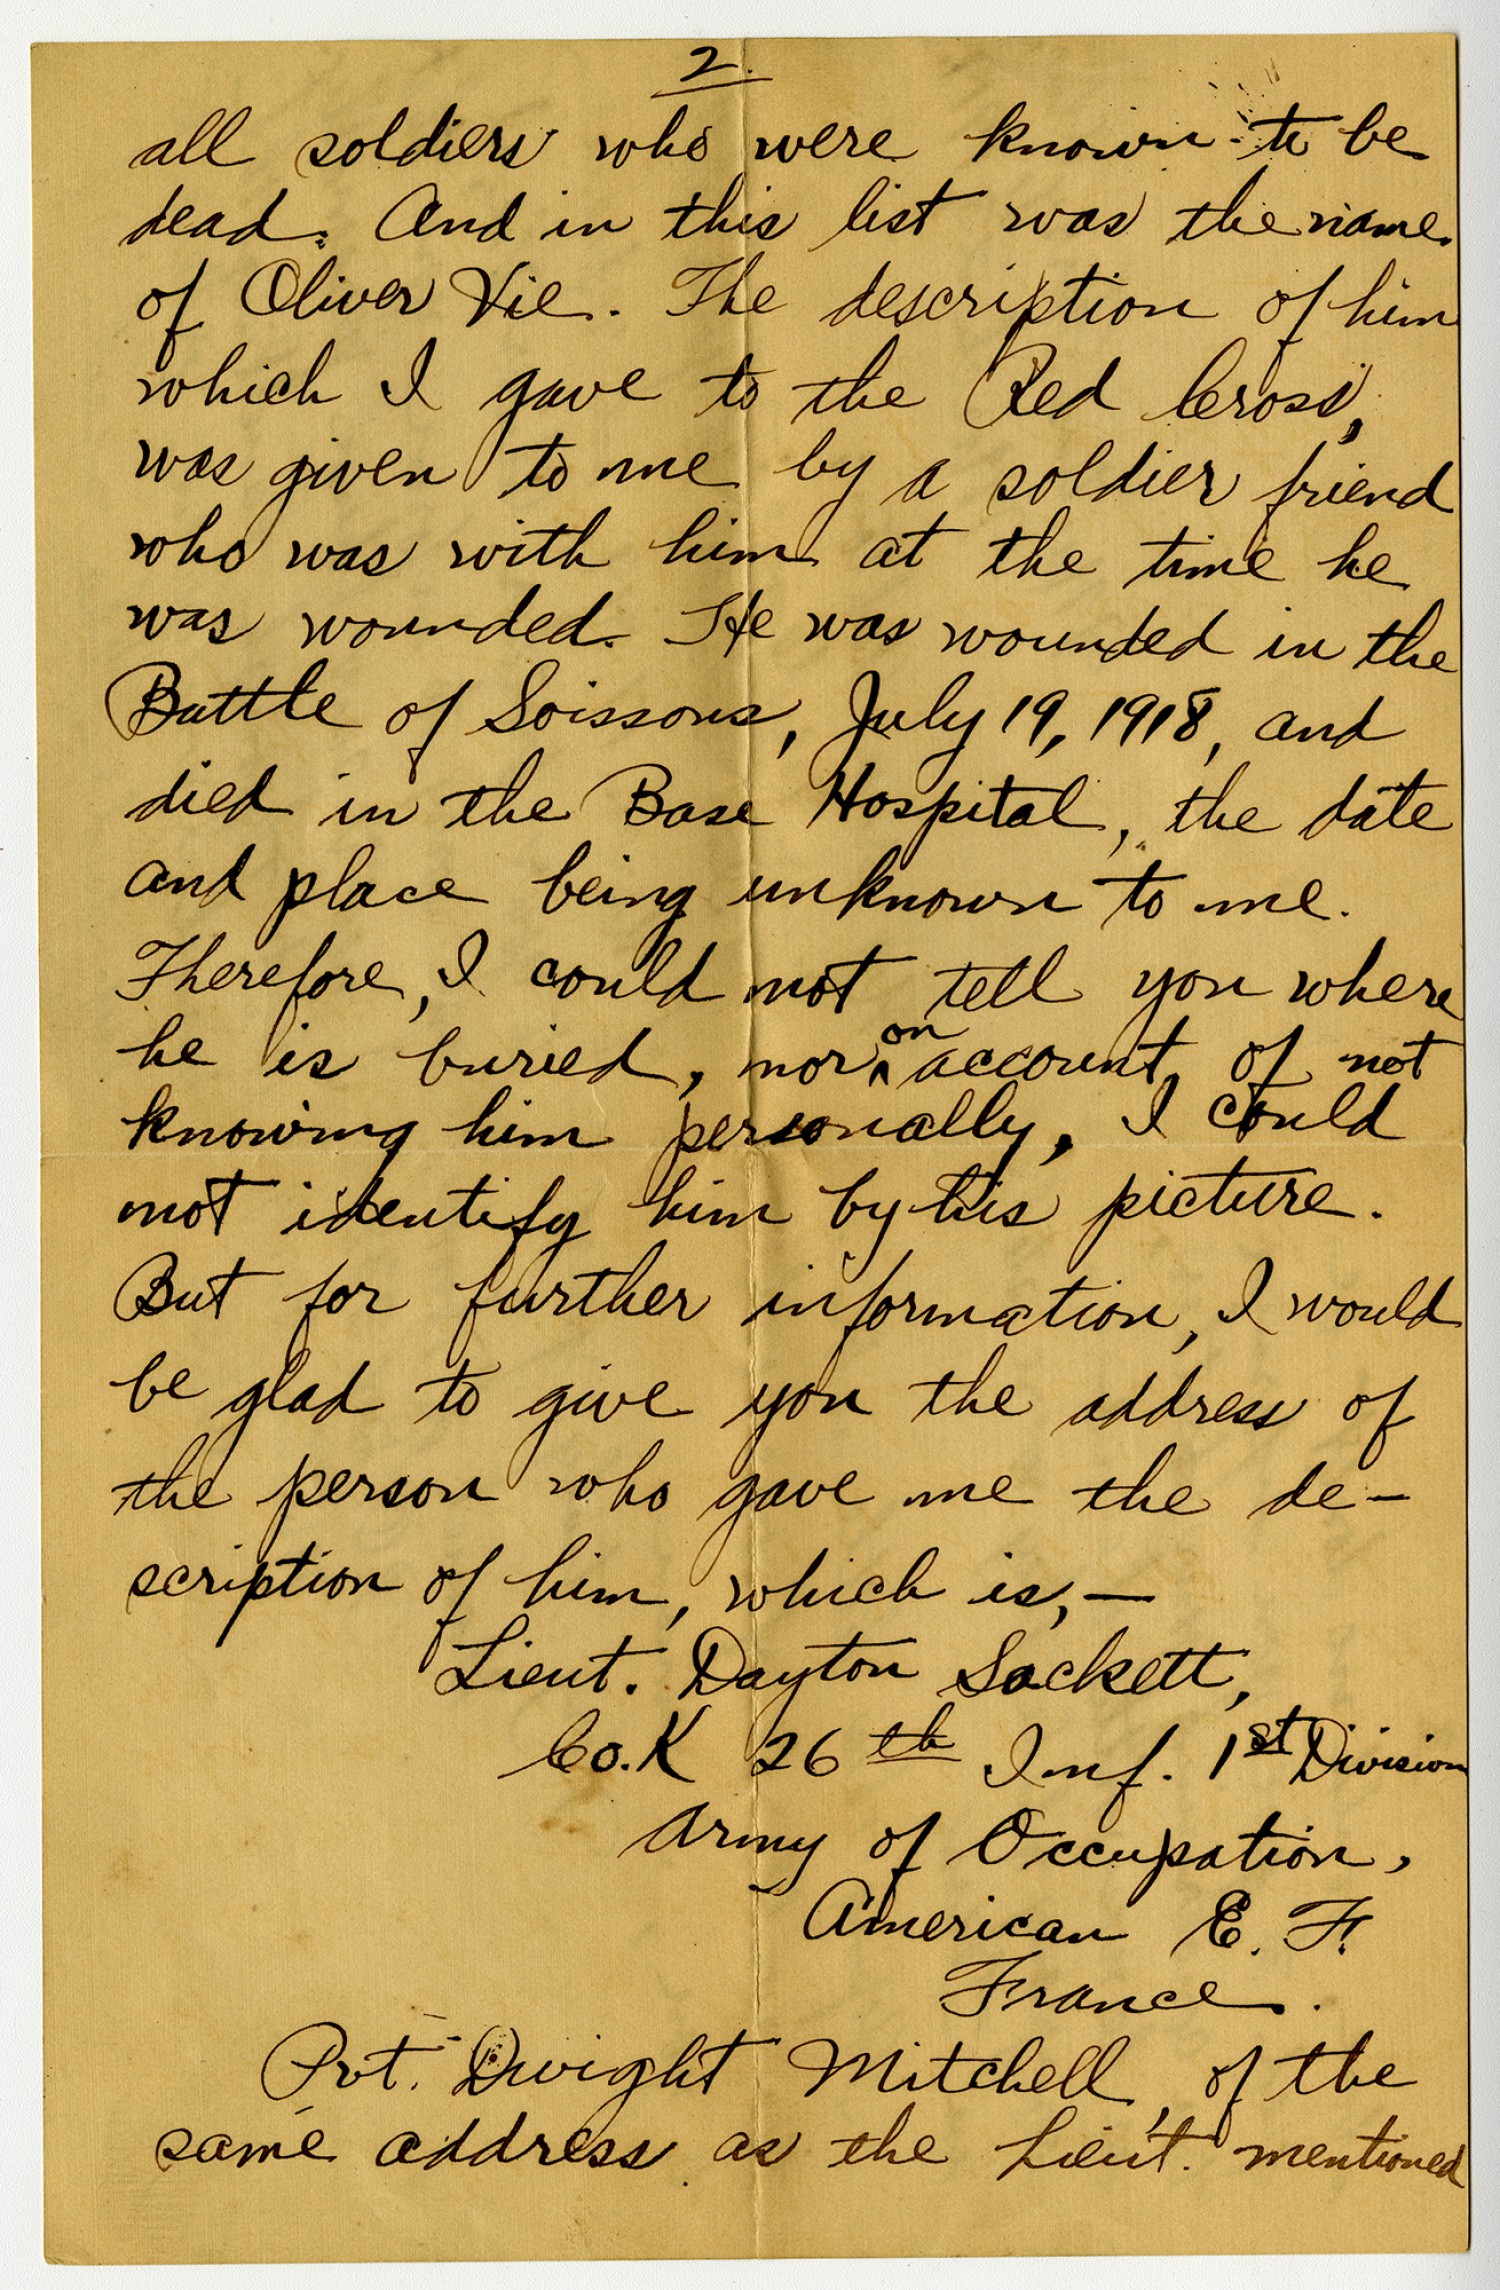 2.
all soldiers who were known to be
dead. And in this list was the name
of Oliver Vie. The description of him
which I gave to the Red Cross,
was given to me by a soldier friend
who was with him at the time he
was wounded. He was wounded in the
Battle of Soissons, July 19, 1918, and
died in the Base Hospital, the date
and place being unknown to me.
Therefore, I could not tell you where
he is buried, nor on account of not
knowing him personally, I could
not identify him by his picture.
But for further information, I would
be glad to give you the address of
the person who gave me the de-
scription of him, which is,—
Lieut. Dayton Sackett,
Co. K 26th Inf. 1st Division
Army of Occupation,
American E. F.
France.
Pvt. Dwight Mitchell, of the
same address as the Lieut. mentioned